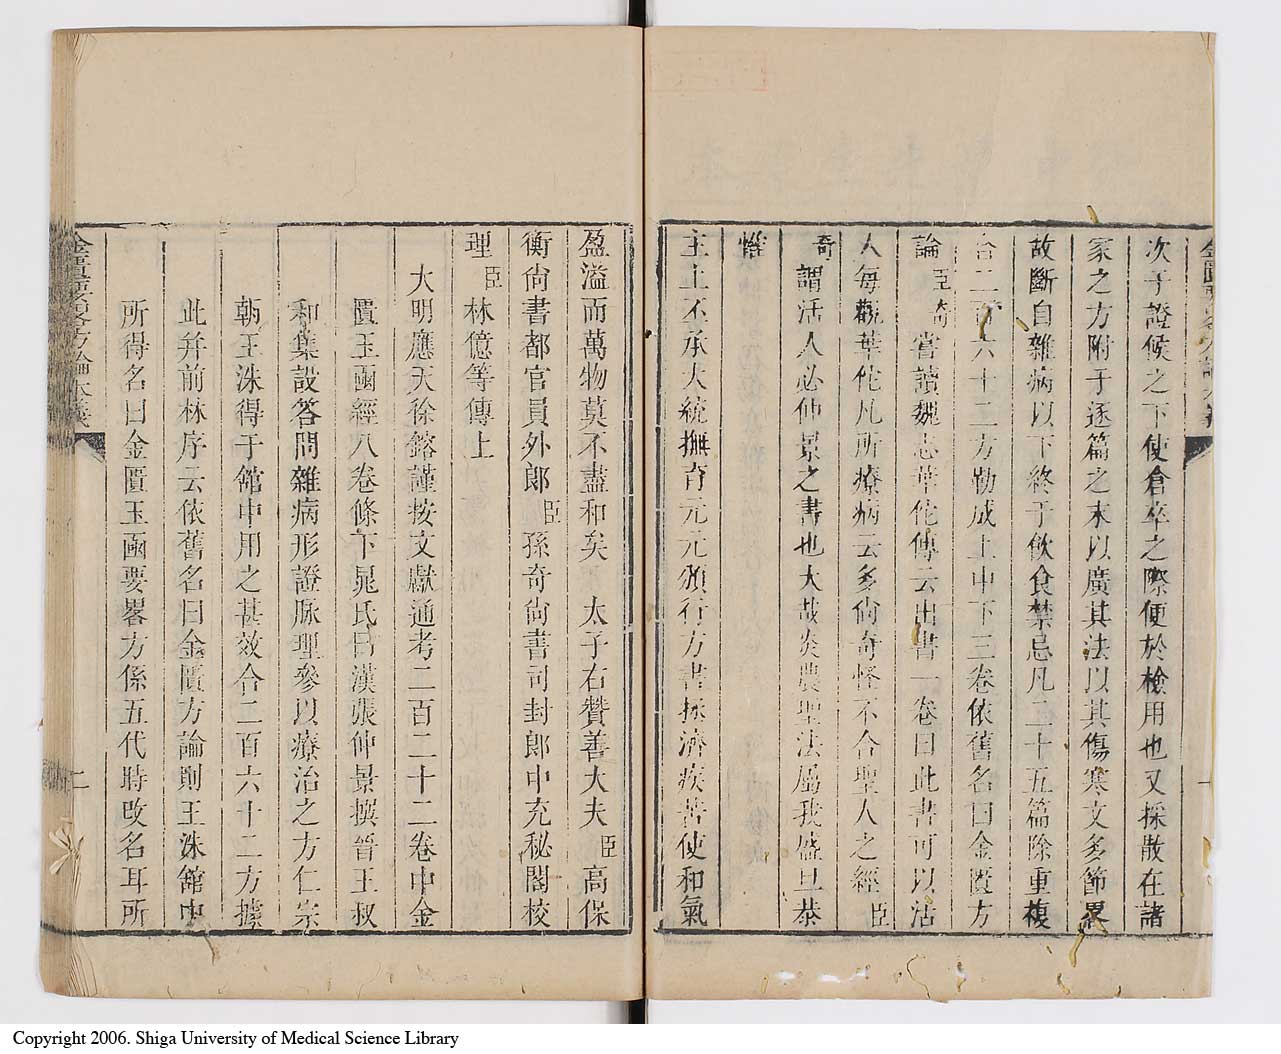 次于證候之下使倉卒之際便於檢用也又採散在諸
家之方附于逐篇之末以廣其法以其傷寒文多節畧
故斷自雜病以下終于飲食禁忌凡二十五篇除重複
合二百六十二方勒成上中下三卷依舊名曰金匱方
論臣奇嘗讀魏志華佗傳云出書一卷曰此書可以活
人每觀華佗凡所療病云多尚奇怪不合聖人之經臣
奇謂活人必仲景之書也大哉炎農聖法屬我盛旦恭
惟
主上丕承大統撫育元元頒行方書拯濟疾苦使和氣
盈溢而萬物莫不盡和矣 太子右贊善大夫臣高保
衡尚書都官員外郎臣孫奇尚書司封郎中充秘閣校
理臣林億等傳上
大明應天徐鎔謹按文獻通考二百二十二卷中金
匱玉函經八卷條下晁氏曰漢張仲景撰晉王叔
和集設答問雜病形證脉理參以療治之方仁宗
朝王洙得于館中用之甚效合二百六十二方據
此并前林序云依舊名曰金匱方論則王洙館中
所得名曰金匱玉函要畧方係五代時改名耳所
金匱要畧方論本義
二
Copyright 2006. Shiga University of Medical Science Library